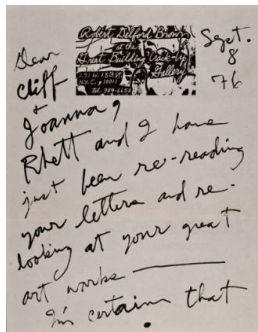 Robert Delford Brown
at the
Great Building Crack-Up
Gallery
251 W. 13th St.
N.Y.C. 10011
Sept.
8
76
Dear
Cliff
+
Joanna,
Rhett and I have
just been re-reading
your letters and re-
looking at your great
art works
I'm certain that